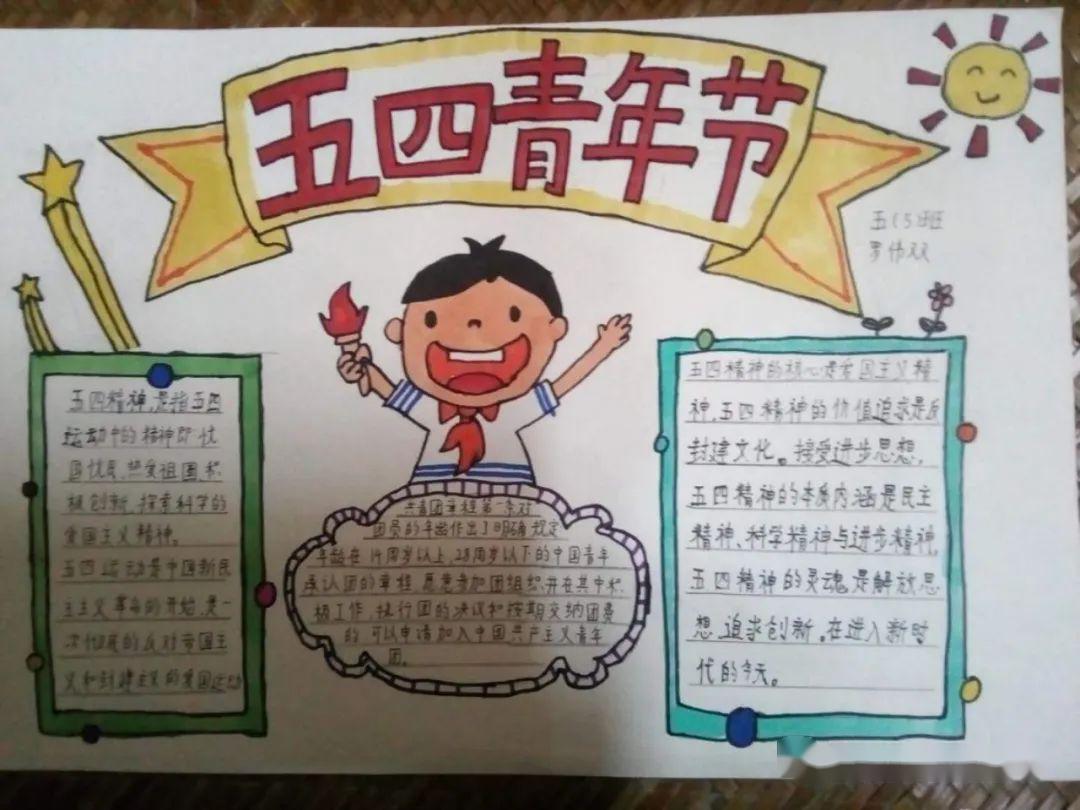 五四青年节
五(5)班
罗伟双
五四精神,是指五四
运动中的精神即忧
国忧民、热爱祖国积
极创新、探索科学的
爱国主义精神。
五四运动是中国新民
主主义革命的开始,是一
次彻底的反对帝国主
义和封建主义的爱国运动
共青团章程第一条对
团员的年龄作出了明确规定
年龄在14周岁以上,28周岁以下的中国青年
承认团的章程,愿意参加团组织并在其中积
极工作、执行团的决议和按期交纳团费
的可以申请加入中国共产主义青年
团。
五四精神的核心是爱国主义精
神,五四精神的价值追求是反
封建文化。接受进步思想,
五四精神的本质内涵是民主
精神、科学精神与进步精神,
五四精神的灵魂是解放思
想追求创新。在进入新时
代的今天。